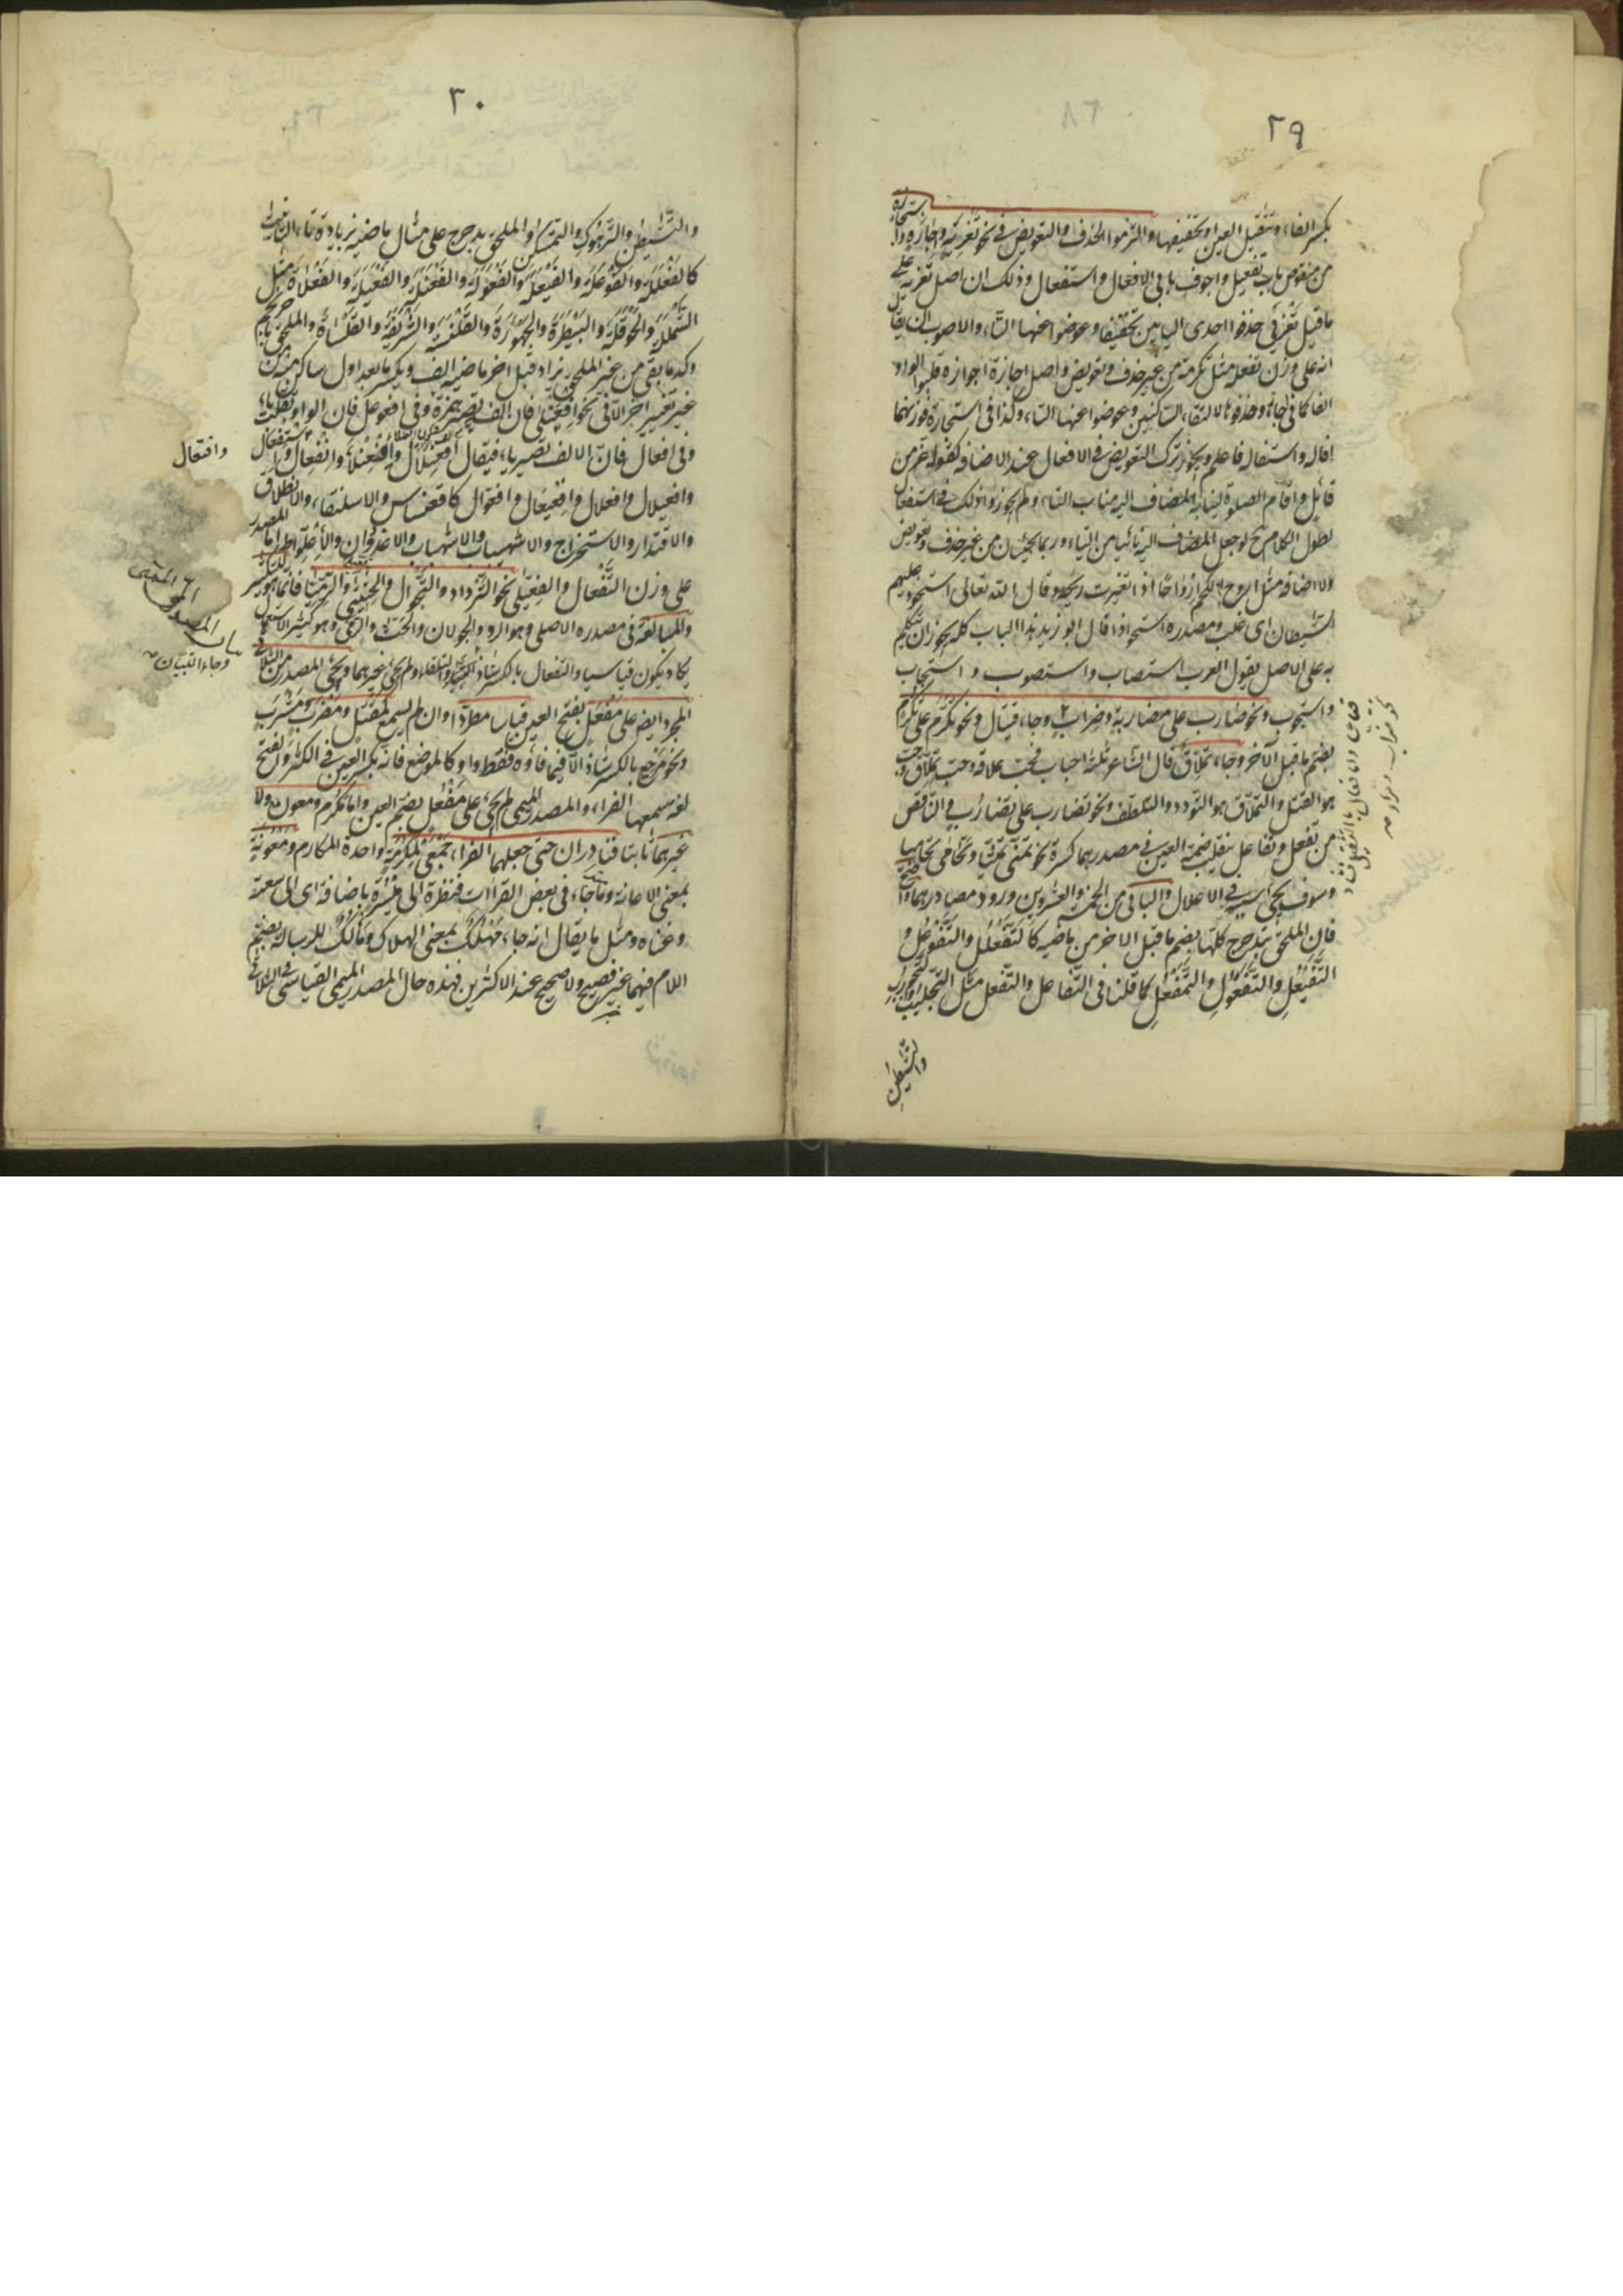 ٢٩
بكسر الفاء وتثقيل العين او تخفيفها والتزموا الحذف والتعويض في نحو تعزية واجازة واستجازة
من منقوص باب تفعيل واجوف بابي الافعال واستفعال وذلك ان اصل تعزية على
ما قيل تعزيي حذفوا احدى اليائين تخفيفا وعوضوا عنها التاء والاصوب ان يقال
انه على وزن تفعلة مثل تكرمة من غير حذف وتعويض واصل اجازة اجوازة قلبوا الواو
الفا كما في اجاز وحذفوها لالتقاء الساكنين وعوضوا عنها التاء وكذا في استجازة فوزنهما
افالة واستفالة فاعلم ويجوز ترك التعويض في الافعال عند الاضافة كقوله عز من
قائل واقام الصلوة لنيابة المضاف اليه مناب التاء ولم يجوزوا ذلك في استفعال
لطول الكلام ح لو جعل المضاف اليه نائبا من التاء وربما يجيئان من غير حذف وتعويض
ولا اضافة مثل اروح اللحم ارواحا اذا تغيرت ريحه وقال الله تعالى استحوذ عليهم
الشيطان اى غلب ومصدره استحواذا قال ابو زيد هذا الباب كله يجوز ان يتكلم
به على الاصل يقول العرب استصاب واستصوب واستجاب
واستجوب ونحو ضارب على مضاربة وضراب وجاء قيتال ونحو تكرم على تكرم
بضم ما قبل الآخر وجاء تملاق قال الشاعر ثلثة احباب فحب علاقة وحب تملاق وحب
هو القتل والتملاق هو التودد والتلطف ونحو تضارب على تضارب في الناقص
من تفعل وتفاعل ينقلب ضمة العين في مصدرهما كسرة نحو تمنى تمنيا وتحامى تحاميا
وسوف يجئ سببه في الاعلال والباقى من الخمسة والعشرين ورود مصادرها واضح
فان الملحق بتدحرج كلها بضم ما قبل الاخر من ماضيه كالتفعلل والتفوعل و
التفيعل والتفعول والتمفعل كما قلنا في التفاعل والتفعل مثل التجلبب والتجورب
والتشيطن
٣٠
والتشيطن والترهوك والتمسكن والملحق بدحرج على مثال ماضيه بزيادة تاء التانيث
كالفعللة والفوعلة والفيعلة والفعولة والفعنلة والفعيلة والفعلاة مثل
الشمللة والحوقلة والبيطرة والجهورة والقلنسة والشريفة والقلساة والملحق باحرنجم
وكذا ما بقى من غير الملحق يزاد قبل اخر ماضيه الف ويكسر ما بعد اول ساكن منه من
غير تغيير اخر الا في نحو افعنلى فان الف تصير همزة وفي افعوعل فان الواو تقلب ياء
وفي افعال فان الالف تصير ياء فيقال افعنلال وافعنلاء وانفعال واستفعال
وافتعال
وافعيلال وافعلال وافعيعال وافعوال كاقعنساس والاسلنقاء والانطلاق
والاقتدار والاستخراج والاشهيباب والاشهباب والاغديدان والاجلواذ واما المصدر
على وزن التفعال والفعيلى نحو الترداد والتجوال والحثيثى والرميا فانما هو للتكثير
والمبالغة في مصدره الاصلى وهو الرد والجولان والحث والرمى وهو كثير الاستعمال
يكاد يكون قياسيا والتفعال بالكسر شاذ كالتبيان والتلقاء ولم يجئ غيرهما ويجئ المصدر من الثلاثى
وجاء التبيان
المجرد ايضا على مفعل بفتح العين قياسا مطردا وان لم يسمع كمقتل ومضرب ومشرب
ونحو مرجع بالكسر شاذ الا فيما فاؤه فقط واو كالموضع فانه بكسر العين في الاكثر والفتح
لغة سمعها الفراء والمصدر الميمى لم يجئ على مفعل بضم العين واما مكرم ومعون ولا
غيرهما ثابتا فنادران حتى جعلهما الفراء جمعى مكرمة واحدة المكارم ومعونة
بمعنى الاعانة وما جاء في بعض القراات فنظرة الى ميسرة باضافة اى الى سعته
وغناه ومثل ما يقال انه جاء مهلك بمعنى الهلاك ومالك للرسالة بضم
اللام فيهما غير فصيح ولا صحيح عند الاكثرين فهذه حال المصدر الميمى القياسى في الثلاثى